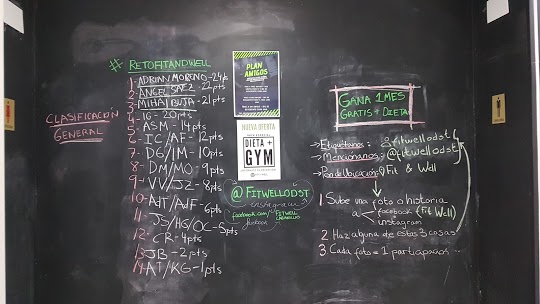 # RETOFITANDWELL
CLASIFICACIÓN
GENERAL
1- ADRIAN MORENO - 24pts
2- ANGEL SAEZ - 22pts
3- MIHAI BUJA - 21pts
4- IG - 20pts
5- ASM - 14pts
6- IC/AF - 12pts
7- DG/IM - 10pts
8- DM/MO - 9pts
9- VV/JZ - 8pts
10- AHT/AJF - 6pts
11- JS/HG/OC - 5pts
12- CR - 4pts
13- JB - 2pts
14- AT/KG - 1pts
PLAN
AMIGOS
NUEVA OFERTA
DIETA +
GYM
@ FITWELLODST
instagram
facebook.com/ FITWELL
facebook
GANA 1 MES
GRATIS + DIETA
→ Etiquetanos: fitwellodst
→ Mencionanos: @fitwellodst
→ Pon de Ubicación: Fit & Well
1 Sube una foto o historia
a facebook (Fit Well)
instagram
2 Haz alguna de estas 3 cosas
3 Cada foto = 1 participación